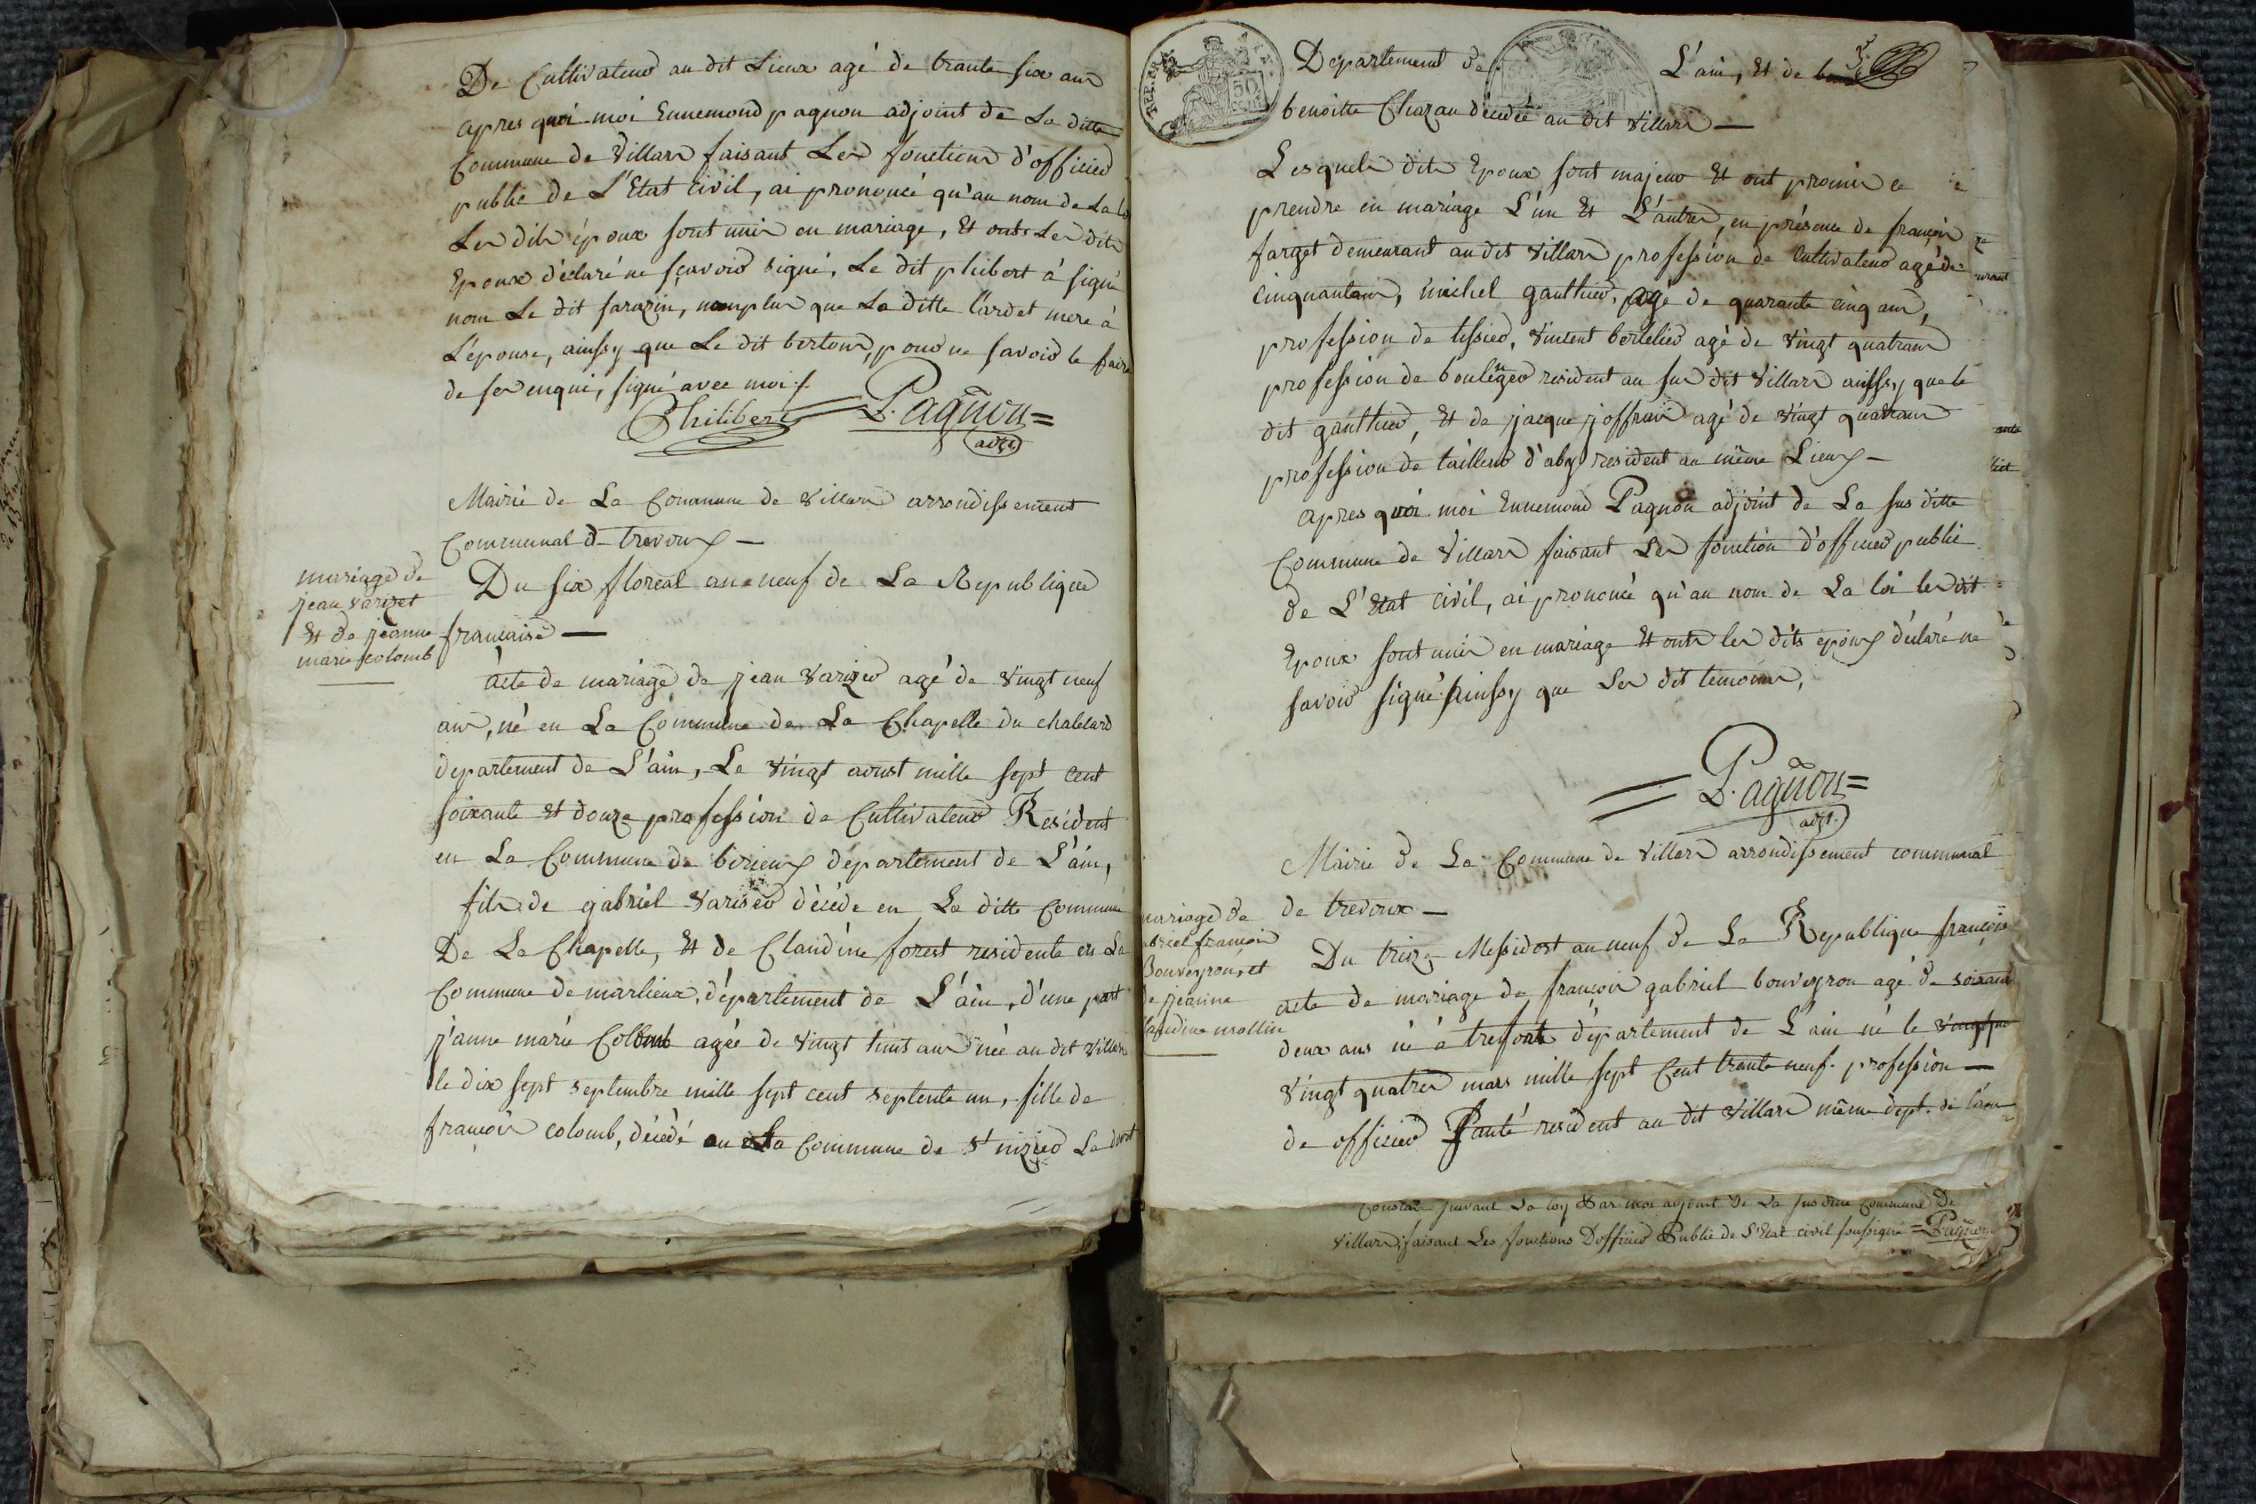 De Cultivateur au dit Lieux agé de trante six ans
apres quoi moi Ennemond pagnon adjoint de La ditte
Commune de Villars faisant Les fonctions d'officier
public de L'Etat civil, ai prononcé qu'au nom de La loi
Les dits époux sont unis en mariage, Et onts Les dits
Epoux déclaré ne sçavoir signé, Le dit philibert à signé
non Le dit sarazin, nonplus que La ditte Cardet mere à
L'épouse, ainssy que Le dit berton, pour ne savoir le faire
de ser enqui, signé avec moi
Philibert P. agnon
adjt
Mairie de La Commune de Villars arrondissement
Communal de trevoux
mariage de
jean varizet
Et de jeanne
marie colomb
Du six floreal an neuf de La Republique
francaise
Acte de mariage de jean varizer agé de vingt neuf
ans, né en La Commune de La Chapelle du chatelard
departement de L'ain, Le vingt aoust mille sept cent
soixante Et douze profession de Cultivateur Resident
en La Commune de birieux département de L'ain,
fils de gabriel variser décédé en La ditte Commune
De La Chapelle, Et de Claudine forest residente en La
Commune de marlieux, département de L'ain, d'une part
j'anne marie Colomb agée de vingt huit ans née au dit villars
le dix sept septembre mille sept cent septente un, fille de
françois colomb, décédé en La Commune de St nizier Le
Departement de L'ain, Et de
benoitte Chazau décédée au dit villars
Lesquels dits Epoux sont majeur Et ont promis
prendre en mariage L'un Et L'autre, en présence de françois
farget demeurant au dit villars profession de Cultivateur agé de
cinquantans, michel gauthier, agé de quarante cinq ans,
profession de tissier, vincent bertelier agé de vingt quatrans
profession de boulenger resident au sus dit villars ainssy que le
dit gauthier, Et de jacque joffray agé de vingt quatrans
profession de tailleur d'aby resident au même Lieux
apres quoi moi Ennemond Pagnon adjoint de La sus ditte
Commune de Villars faisant Les fonction d'officier public
de L'Etat civil, ai prononcé qu'au nom de La loi les dit
Epoux sont unis en mariage Et onts les dits epoux déclaré ne
savoir signé ainssy que Les dit temoins,
P. agnon
adjt.
Mairie de La Commune de Villars arrondissement communal
de trevoux
mariage de
gabriel francois
Bouveyron, et
de jeanne
claudine mollin
Du treize Messidort an neuf de La Republique françoise
acte de mariage de françois gabriel bouveyron agé de soixante
deux ans né à trefort département de L'ain né le
vingt quatres mars mille sept Cent trante neuf. profession
de officier Santé resident au dit villars même dept. de l'ain
Constaté suivant La loy Par moi adjoint de La sus ditte commune De
Villars, faisant Les fonctions D'officier Public de L'Etat civil soussigné Pagnon